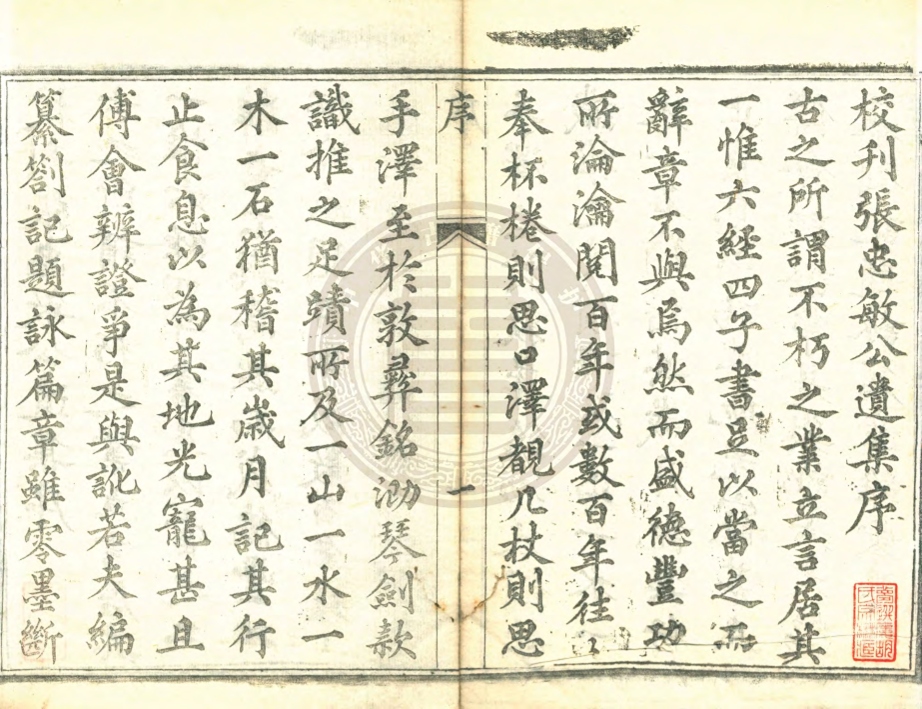 校刊張忠敏公遺集序
古之所謂不朽之業立言居其
一惟六經四子書足以當之而
辭章不與焉然而盛德豐功
所淪瀹閱百年或數百年往
奉杯棬則思口澤覩几杖則思
序
一
手澤至於敦彝銘泐琴劍款
識推之足蹟所及一山一水一
木一石猶稽其歲月記其行
止食息以為其地光寵甚且
傅會辨證爭是與訛若夫編
纂劄記題詠篇章雖零墨斷